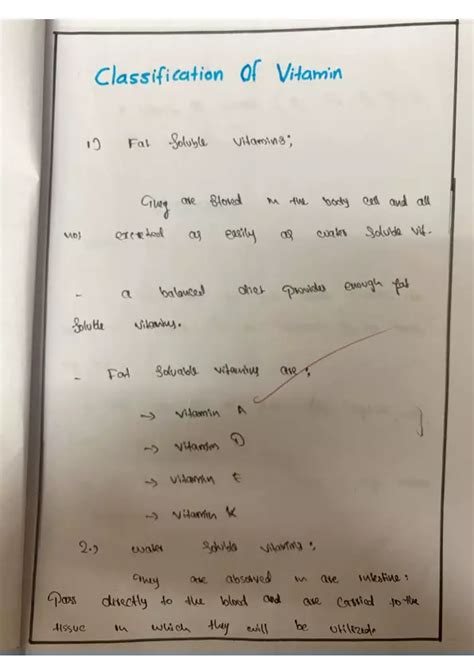 Classification Of Vitamin
1) Fat Soluble vitamins;
They are Stored in the body cell and all
not excreted as easily as water Soluble vit.
- a balanced diet provides enough fat
Soluble vitamins.
- Fat Soluable vitamins are;
→ vitamin A
→ vitamin D
→ vitamin E
→ vitamin K
2.) water Soluble vitamins;
They are absorved in are intestine;
Pass directly to the blood and are Carried to the
tissue in which they will be utilized.